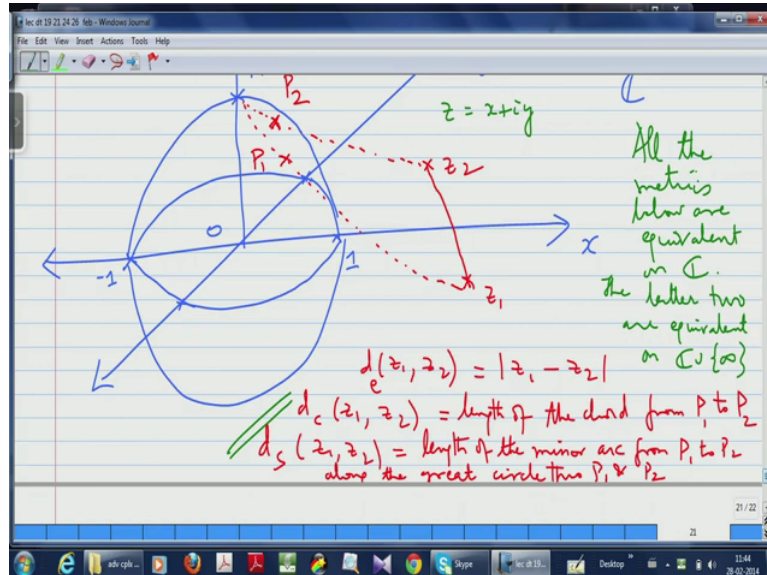 lec dt 19 21 24 26 feb - Windows Journal
File Edit View Insert Actions Tools Help
P2
z = x+iy
ℂ
P1
z2
0
-1
1
x
z1
All the
metrics
below are
equivalent
on ℂ.
The latter two
are equivalent
on ℂ∪{∞}
de(z1, z2) = |z1 - z2|
dc(z1, z2) = length of the chord from P1 to P2
ds(z1, z2) = length of the minor arc from P1 to P2
along the great circle thro P1 & P2
21 / 22
21
adv cplx ...
Skype
lec dt 19...
Desktop
11:44
28-02-2014